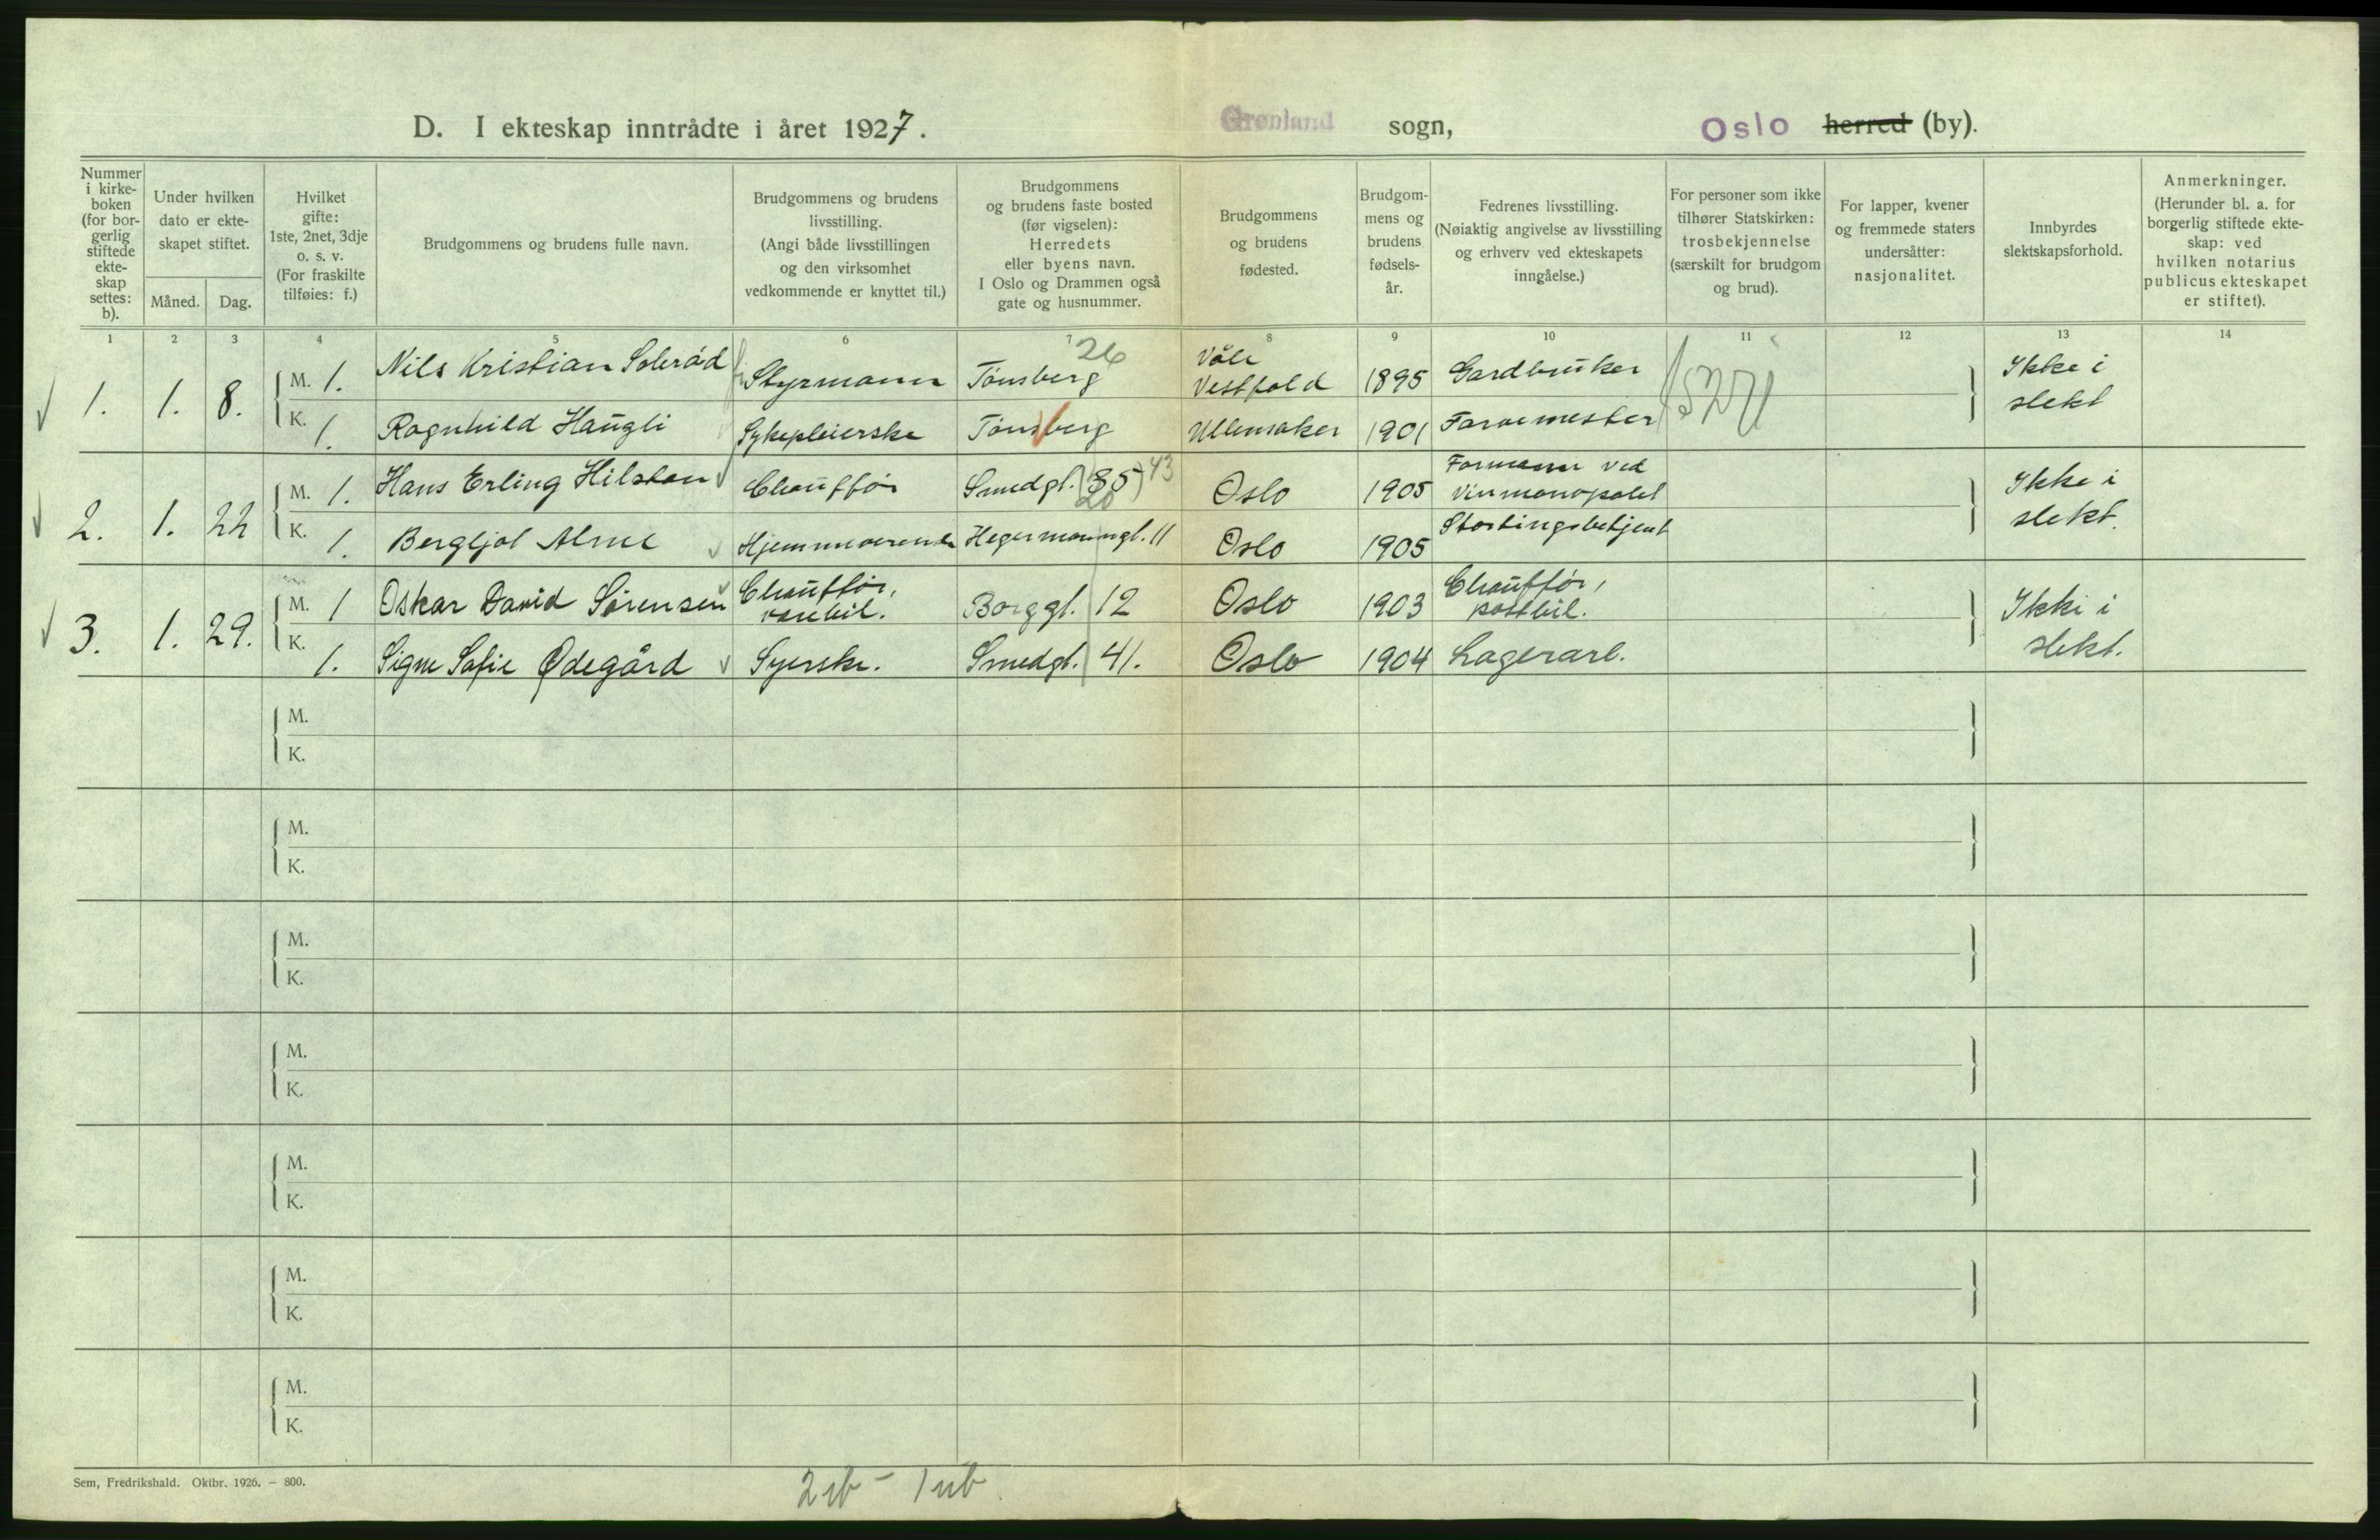 D. I ekteskap inntrådte i året 1927. Grønland sogn, Oslo herred (by).
Nummer i kirke- boken (for bor- gerlig stiftede ekte- skap settes: b).
Under hvilken dato er ekte- skapet stiftet.
Måned. Dag.
Hvilket gifte: 1ste, 2net, 3dje o. s. v. (For fraskilte tilføies: f.)
Brudgommens og brudens fulle navn.
Brudgommens og brudens livsstilling. (Angi både livsstillingen og den virksomhet vedkommende er knyttet til.)
Brudgommens og brudens faste bosted (før vigselen): Herredets eller byens navn. I Oslo og Drammen også gate og husnummer.
Brudgommens og brudens fødested.
Brudgom- mens og brudens fødsels- år.
Fedrenes livsstilling. (Nøiaktig angivelse av livsstilling og erhverv ved ekteskapets inngåelse.)
For personer som ikke tilhører Statskirken: trosbekjennelse (særskilt for brudgom og brud).
For lapper, kvener og fremmede staters undersåtter: nasjonalitet.
Innbyrdes slektskapsforhold.
Anmerkninger. (Herunder bl. a. for borgerlig stiftede ekte- skap: ved hvilken notarius publicus ekteskapet er stiftet).
1 2 3 4 5 6 7 8 9 10 11 12 13 14
26
1. 1. 8. M. 1. Nils Kristian Solerød Styrmann Tønsberg Våle Vestfold 1895 Gardbruker Ikke i slekt
K. 1. Ragnhild Haugli Sykepleierske Tønsberg Ullensaker 1901 Farvemester
2. 1. 22 M. 1. Hans Erling Hilstan Chauffør Smedgt. 35 43 20 Oslo 1905 Formann ved Vinmonopolet Ikke i slekt.
K. 1. Bergljot Alme Hjemmeværende Hegermanngt. 11 Oslo 1905 Stortingsbetjent
3. 1. 29. M. 1 Oskar David Sørensen Chauffør, varebil. Borggt. 12 Oslo 1903 Chauffør, postbil. Ikke i slekt.
K. 1. Signe Sofie Ødegård Syerske. Smedgt. 41. Oslo 1904 Lagerarb.
M.
K.
M.
K.
M.
K.
M.
K.
M.
K.
M.
K.
M.
K.
Sem, Fredrikshald. Oktbr. 1926. — 800.